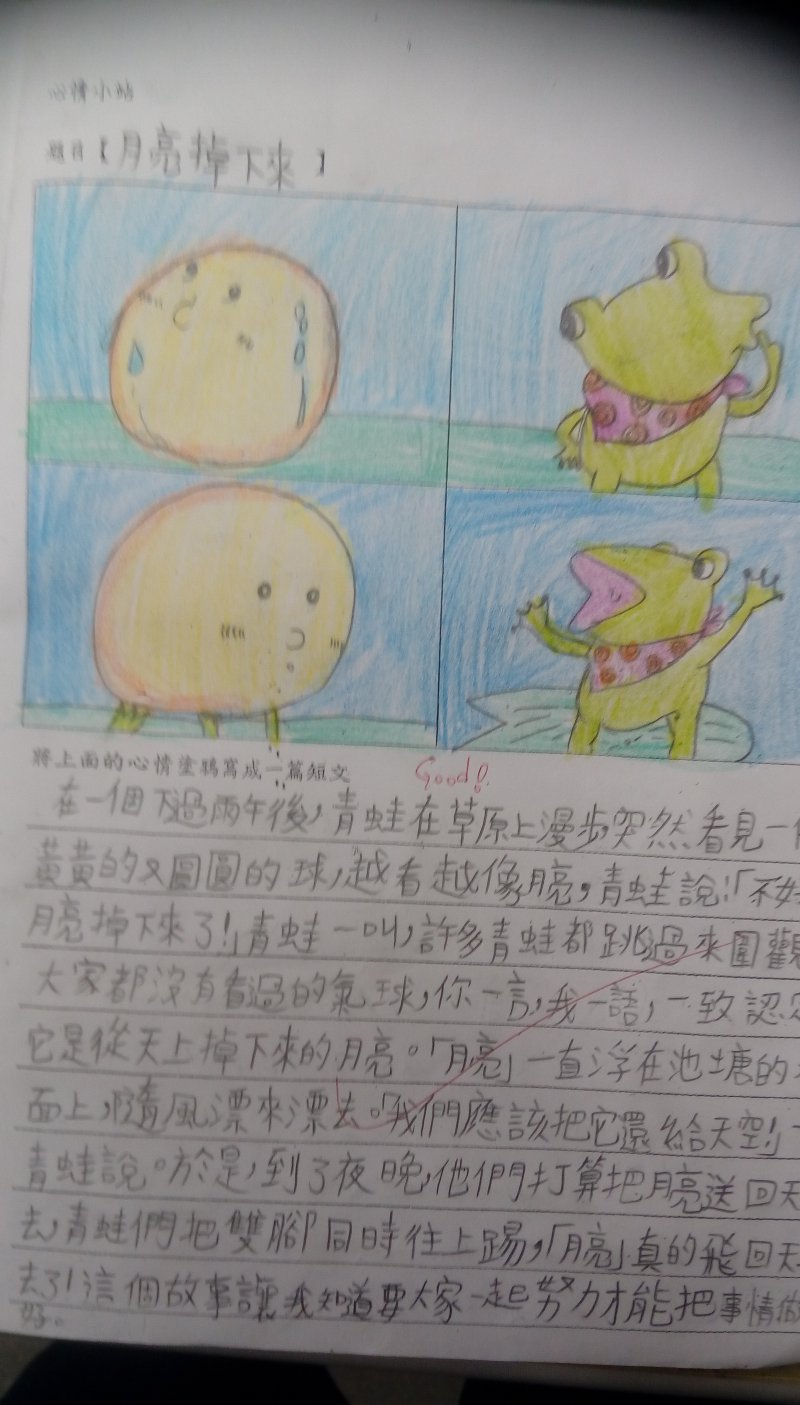 心情小站
題目【月亮掉下來】
將上面的心情塗鴉寫成一篇短文
Good!
在一個下過雨午後,青蛙在草原上漫步,突然看見一
黃黃的又圓圓的球,越看越像月亮,青蛙說:「不好
月亮掉下來了!」青蛙一叫,許多青蛙都跳過來圍觀
大家都沒有看過的氣球,你一言,我一語,一致認定
它是從天上掉下來的月亮。「月亮」一直浮在池塘的
面上,隨風漂來漂去。「我們應該把它還給天空!」
青蛙說。於是,到了夜晚,他們打算把月亮送回天
去,青蛙們把雙腳同時往上踢,「月亮」真的飛回天
去了!這個故事讓我知道要大家一起努力才能把事情做
好。